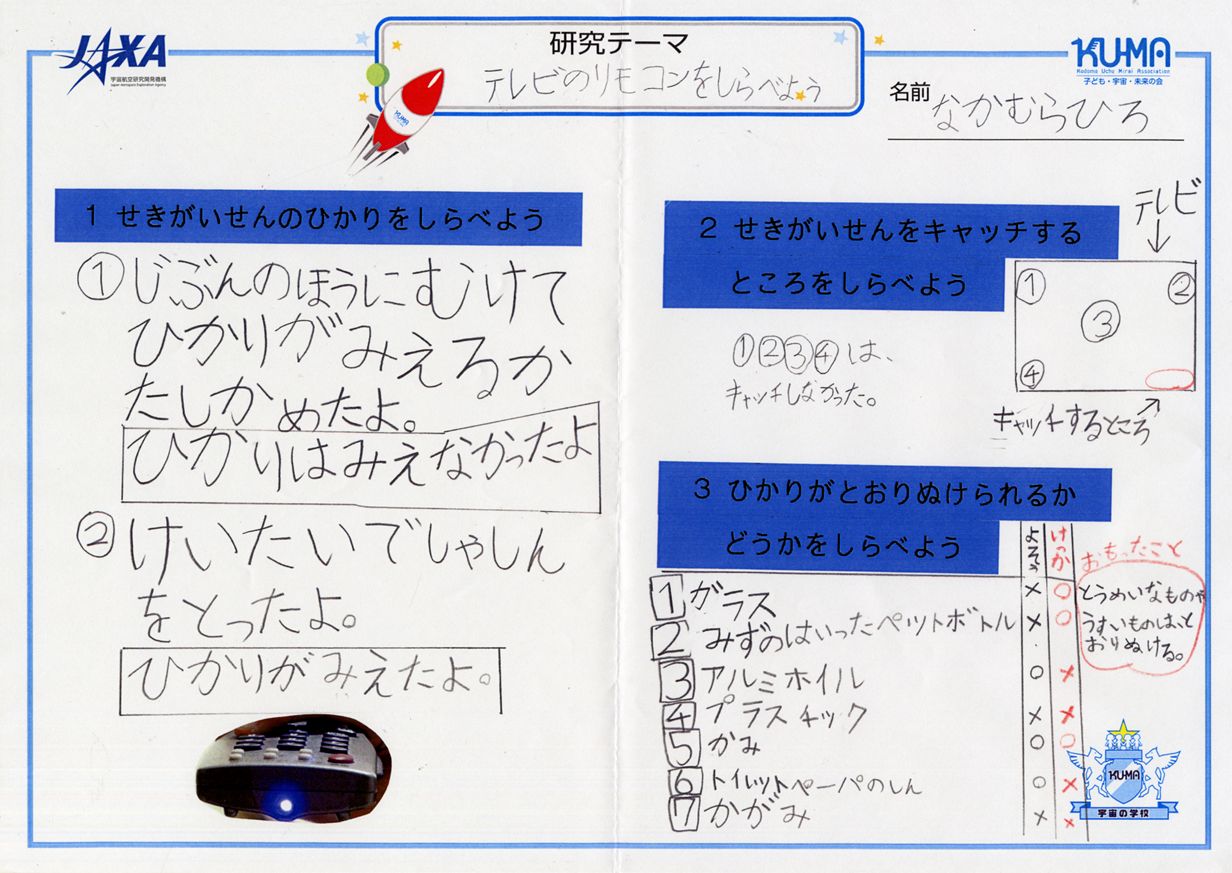 JAXA
宇宙航空研究開発機構
Japan Aerospace Exploration Agency
研究テーマ
テレビのリモコンをしらべよう
KUMA
KUMA
Kodomo Uchu Mirai Association
子ども・宇宙・未来の会
名前 なかむらひろ
1 せきがいせんのひかりをしらべよう
① じぶんのほうにむけて
ひかりがみえるか
たしかめたよ。
ひかりはみえなかったよ
② けいたいでしゃしん
をとったよ。
ひかりがみえたよ。
2 せきがいせんをキャッチする
ところをしらべよう
テレビ
① ②
③
④
①②③④は、
キャッチしなかった。
キャッチするところ
3 ひかりがとおりぬけられるか
どうかをしらべよう
よそう けっか
1 ガラス × ○
2 みずのはいったペットボトル × ○
3 アルミホイル ○ ×
4 プラスチック × ×
5 かみ ○ ○
6 トイレットペーパのしん ○ ×
7 かがみ × ×
おもったこと
とうめいなものや
うすいものは、と
おりぬける。
KUMA
宇宙の学校